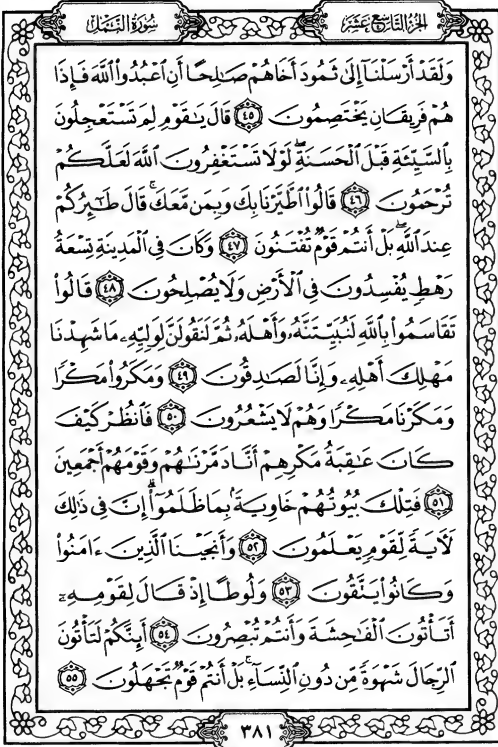 الجزء التاسع عشر
سورة النمل
وَلَقَدْ أَرْسَلْنَآ إِلَىٰ ثَمُودَ أَخَاهُمْ صَٰلِحًا أَنِ ٱعْبُدُواْ ٱللَّهَ فَإِذَا
هُمْ فَرِيقَانِ يَخْتَصِمُونَ ٤٥ قَالَ يَٰقَوْمِ لِمَ تَسْتَعْجِلُونَ
بِٱلسَّيِّئَةِ قَبْلَ ٱلْحَسَنَةِۖ لَوْلَا تَسْتَغْفِرُونَ ٱللَّهَ لَعَلَّكُمْ
تُرْحَمُونَ ٤٦ قَالُواْ ٱطَّيَّرْنَا بِكَ وَبِمَن مَّعَكَۚ قَالَ طَٰٓئِرُكُمْ
عِندَ ٱللَّهِۖ بَلْ أَنتُمْ قَوْمٌ تُفْتَنُونَ ٤٧ وَكَانَ فِى ٱلْمَدِينَةِ تِسْعَةُ
رَهْطٍ يُفْسِدُونَ فِى ٱلْأَرْضِ وَلَا يُصْلِحُونَ ٤٨ قَالُواْ
تَقَاسَمُواْ بِٱللَّهِ لَنُبَيِّتَنَّهُۥ وَأَهْلَهُۥ ثُمَّ لَنَقُولَنَّ لِوَلِيِّهِۦ مَا شَهِدْنَا
مَهْلِكَ أَهْلِهِۦ وَإِنَّا لَصَٰدِقُونَ ٤٩ وَمَكَرُواْ مَكْرًا
وَمَكَرْنَا مَكْرًا وَهُمْ لَا يَشْعُرُونَ ٥٠ فَٱنظُرْ كَيْفَ
كَانَ عَٰقِبَةُ مَكْرِهِمْ أَنَّا دَمَّرْنَٰهُمْ وَقَوْمَهُمْ أَجْمَعِينَ
٥١ فَتِلْكَ بُيُوتُهُمْ خَاوِيَةًۢ بِمَا ظَلَمُوٓاْۗ إِنَّ فِى ذَٰلِكَ
لَأٓيَةً لِّقَوْمٍ يَعْلَمُونَ ٥٢ وَأَنجَيْنَا ٱلَّذِينَ ءَامَنُواْ
وَكَانُواْ يَتَّقُونَ ٥٣ وَلُوطًا إِذْ قَالَ لِقَوْمِهِۦٓ
أَتَأْتُونَ ٱلْفَٰحِشَةَ وَأَنتُمْ تُبْصِرُونَ ٥٤ أَئِنَّكُمْ لَتَأْتُونَ
ٱلرِّجَالَ شَهْوَةً مِّن دُونِ ٱلنِّسَآءِۚ بَلْ أَنتُمْ قَوْمٌ تَجْهَلُونَ ٥٥
٣٨١